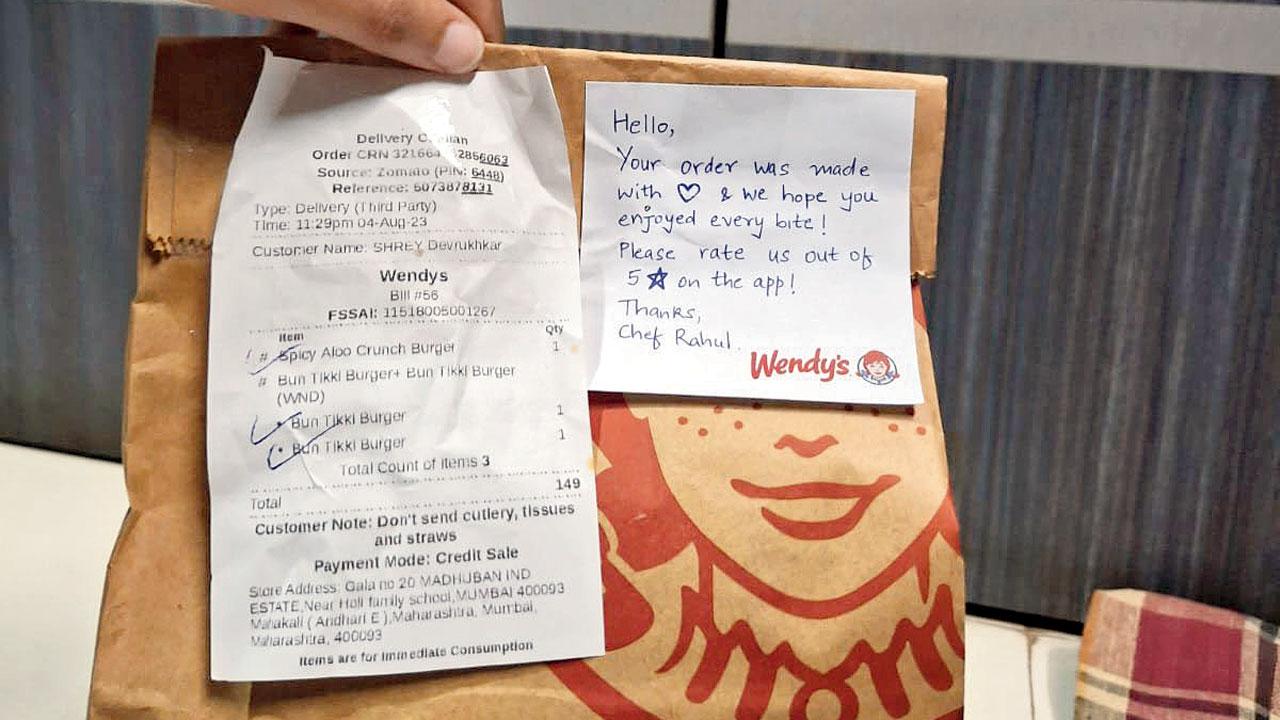 Delivery
Order CRN 321664 2856063
Source: Zomato (PIN: 6448)
Reference: 5073878131
Type: Delivery (Third Party)
Time: 11:29pm 04-Aug-23
Customer Name: SHREY Devrukhkar
Wendys
Bill #56
FSSAI: 11518005001267
Item Qty
# Spicy Aloo Crunch Burger 1
# Bun Tikki Burger+ Bun Tikki Burger
(WND)
Bun Tikki Burger 1
Bun Tikki Burger 1
Total Count of Items 3
Total 149
Customer Note: Don't send cutlery, tissues
and straws
Payment Mode: Credit Sale
Store Address: Gala no 20 MADHUBAN IND
ESTATE,Near Holi family school,MUMBAI 400093
Mahakali ( Andhari E ),Maharashtra, Mumbai,
Maharashtra, 400093
Items are for Immediate Consumption
Hello,
Your order was made
with ♡ & we hope you
enjoyed every bite!
Please rate us out of
5 ★ on the app!
Thanks,
Chef Rahul.
Wendy's